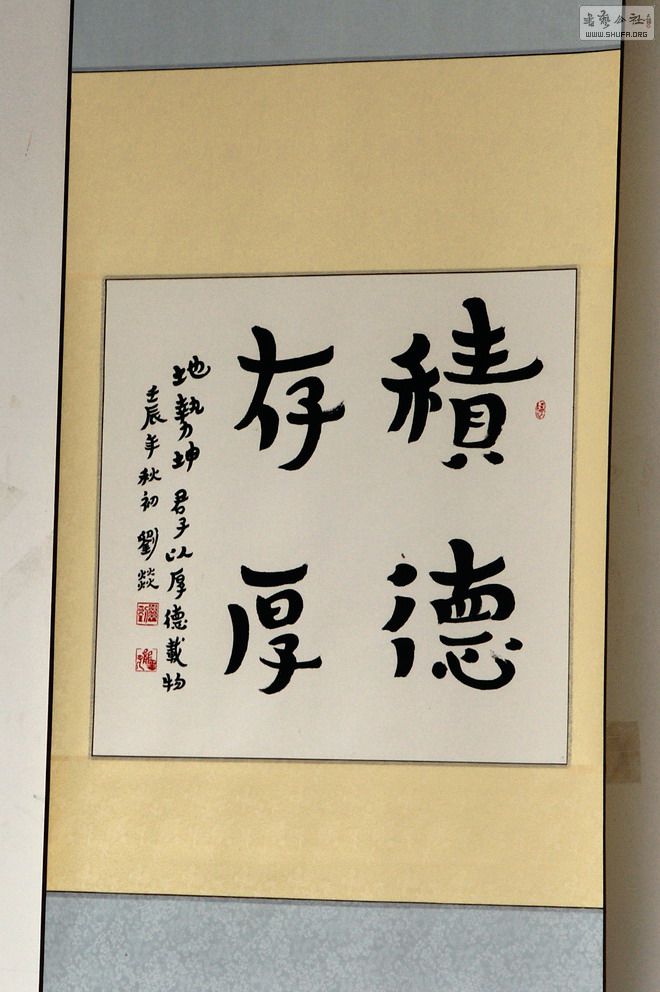 積德
存厚
地勢坤君子以厚德載物
壬辰年秋初劉燚
書藝公社
WWW.SHUFA.ORG